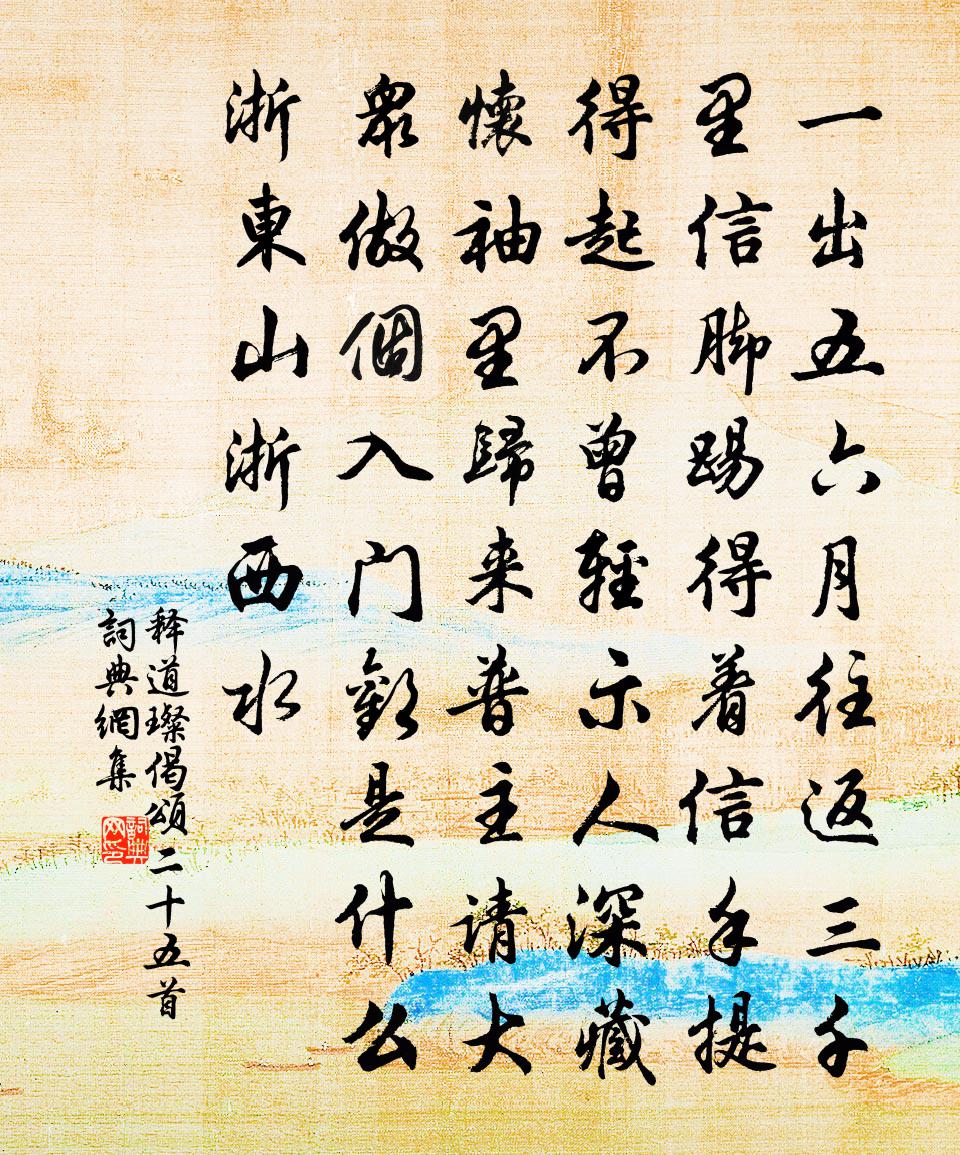 一出五六月往返三千
里信脚踢得着信手提
得起不曾轻示人深藏
懷袖里歸来普主请大
衆做個入门觀是什么
浙東山浙西水
释道璨偈頌二十五首
詞典網集
詞典網印